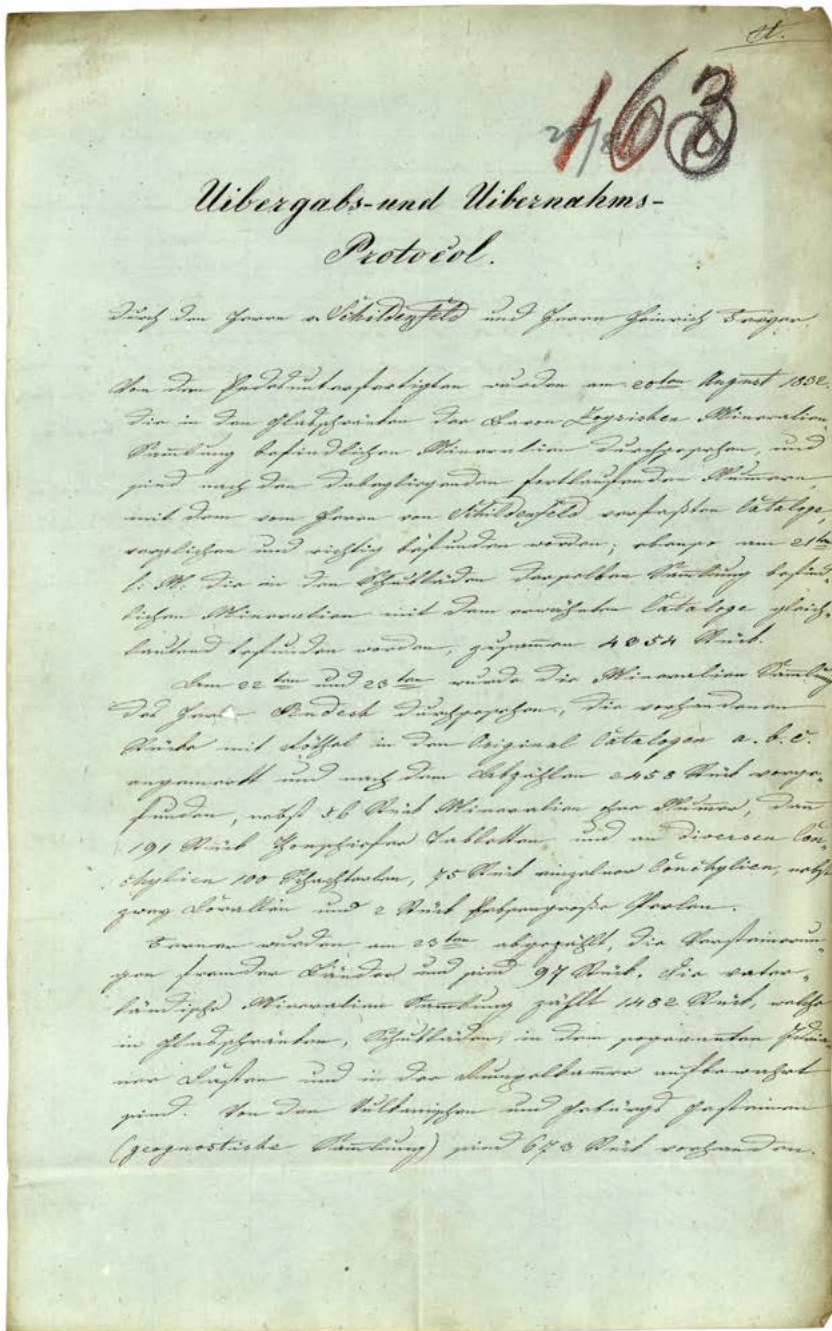 A.
163
Uibergabs- und Uibernahms-
Protocol.
durch den Herrn v. Schildenfeld und Herrn Heinrich Freyer.
Von den Endesunterfertigten wurden am 20ten August 1832.
die in den Glasschränken der Baron Zoysischen Mineralien
Sam̅lung befindlichen Mineralien durchgesehen, und
sind nach den dabeyliegenden fortlaufenden Num̅ern,
mit dem vom Herrn von Schildenfeld verfaßten Cataloge,
verglichen und richtig befunden worden; ebenso am 21ten
l: M: die in den Schubläden derselben Sam̅lung befind-
lichen Mineralien mit dem erwähnten Cataloge gleich-
lautend befunden worden, zusam̅en 4354 Stück.
Am 22ten und 23ten wurde die Mineralien Sam̅lung
des Herrn durchgesehen, die vorhandenen
Stücke mit Röthel in den Original Catalogen a. b. c.
angemerkt und nach dem Abzählen 2458 Stück vorge-
funden, nebst 56 Stück Mineralien ohne Num̅er, dann
191 Stück Thonschiefer Tabletten und an diversen Con-
chylien 100 Schachterlen, 75 Stück einzelner Conchylien, nebst
zwey Corallen und 2 Stück Erbsengroße Perlen.
Ferner wurden am 23ten abgezählt, die Versteinerun-
gen fremder Länder und sind 97 Stück. Die vater-
ländische Mineralien Sam̅lung zählt 1482 Stück, welche
in Glasschränken, Schubläden, in dem sogenannten
Kasten und in der Rumpelkam̅er aufbewahrt
sind. Von den Vulkanischen und Gebürgs Gesteinen
(geognostische Sam̅lung) sind 673 Stück vorhanden.